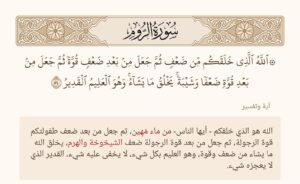 سُورَةُ الرُّومِ
۞ ٱللَّهُ ٱلَّذِى خَلَقَكُم مِّن ضَعْفٍ ثُمَّ جَعَلَ مِنۢ بَعْدِ ضَعْفٍ قُوَّةً ثُمَّ جَعَلَ مِنۢ
بَعْدِ قُوَّةٍ ضَعْفًا وَشَيْبَةً ۚ يَخْلُقُ مَا يَشَآءُ ۖ وَهُوَ ٱلْعَلِيمُ ٱلْقَدِيرُ
آية وتفسير
الله هو الذي خلقكم - أيها الناس- من ماء مَهين، ثم جعل من بعد ضعف طفولتكم
قوة الرجولة، ثم جعل من بعد قوة الرجولة ضعف الشيخوخة والهرم، يخلق الله
ما يشاء من ضعف وقوة، وهو العليم بكل شيء، لا يخفى عليه شيء، القدير الذي
لا يعجزه شيء.